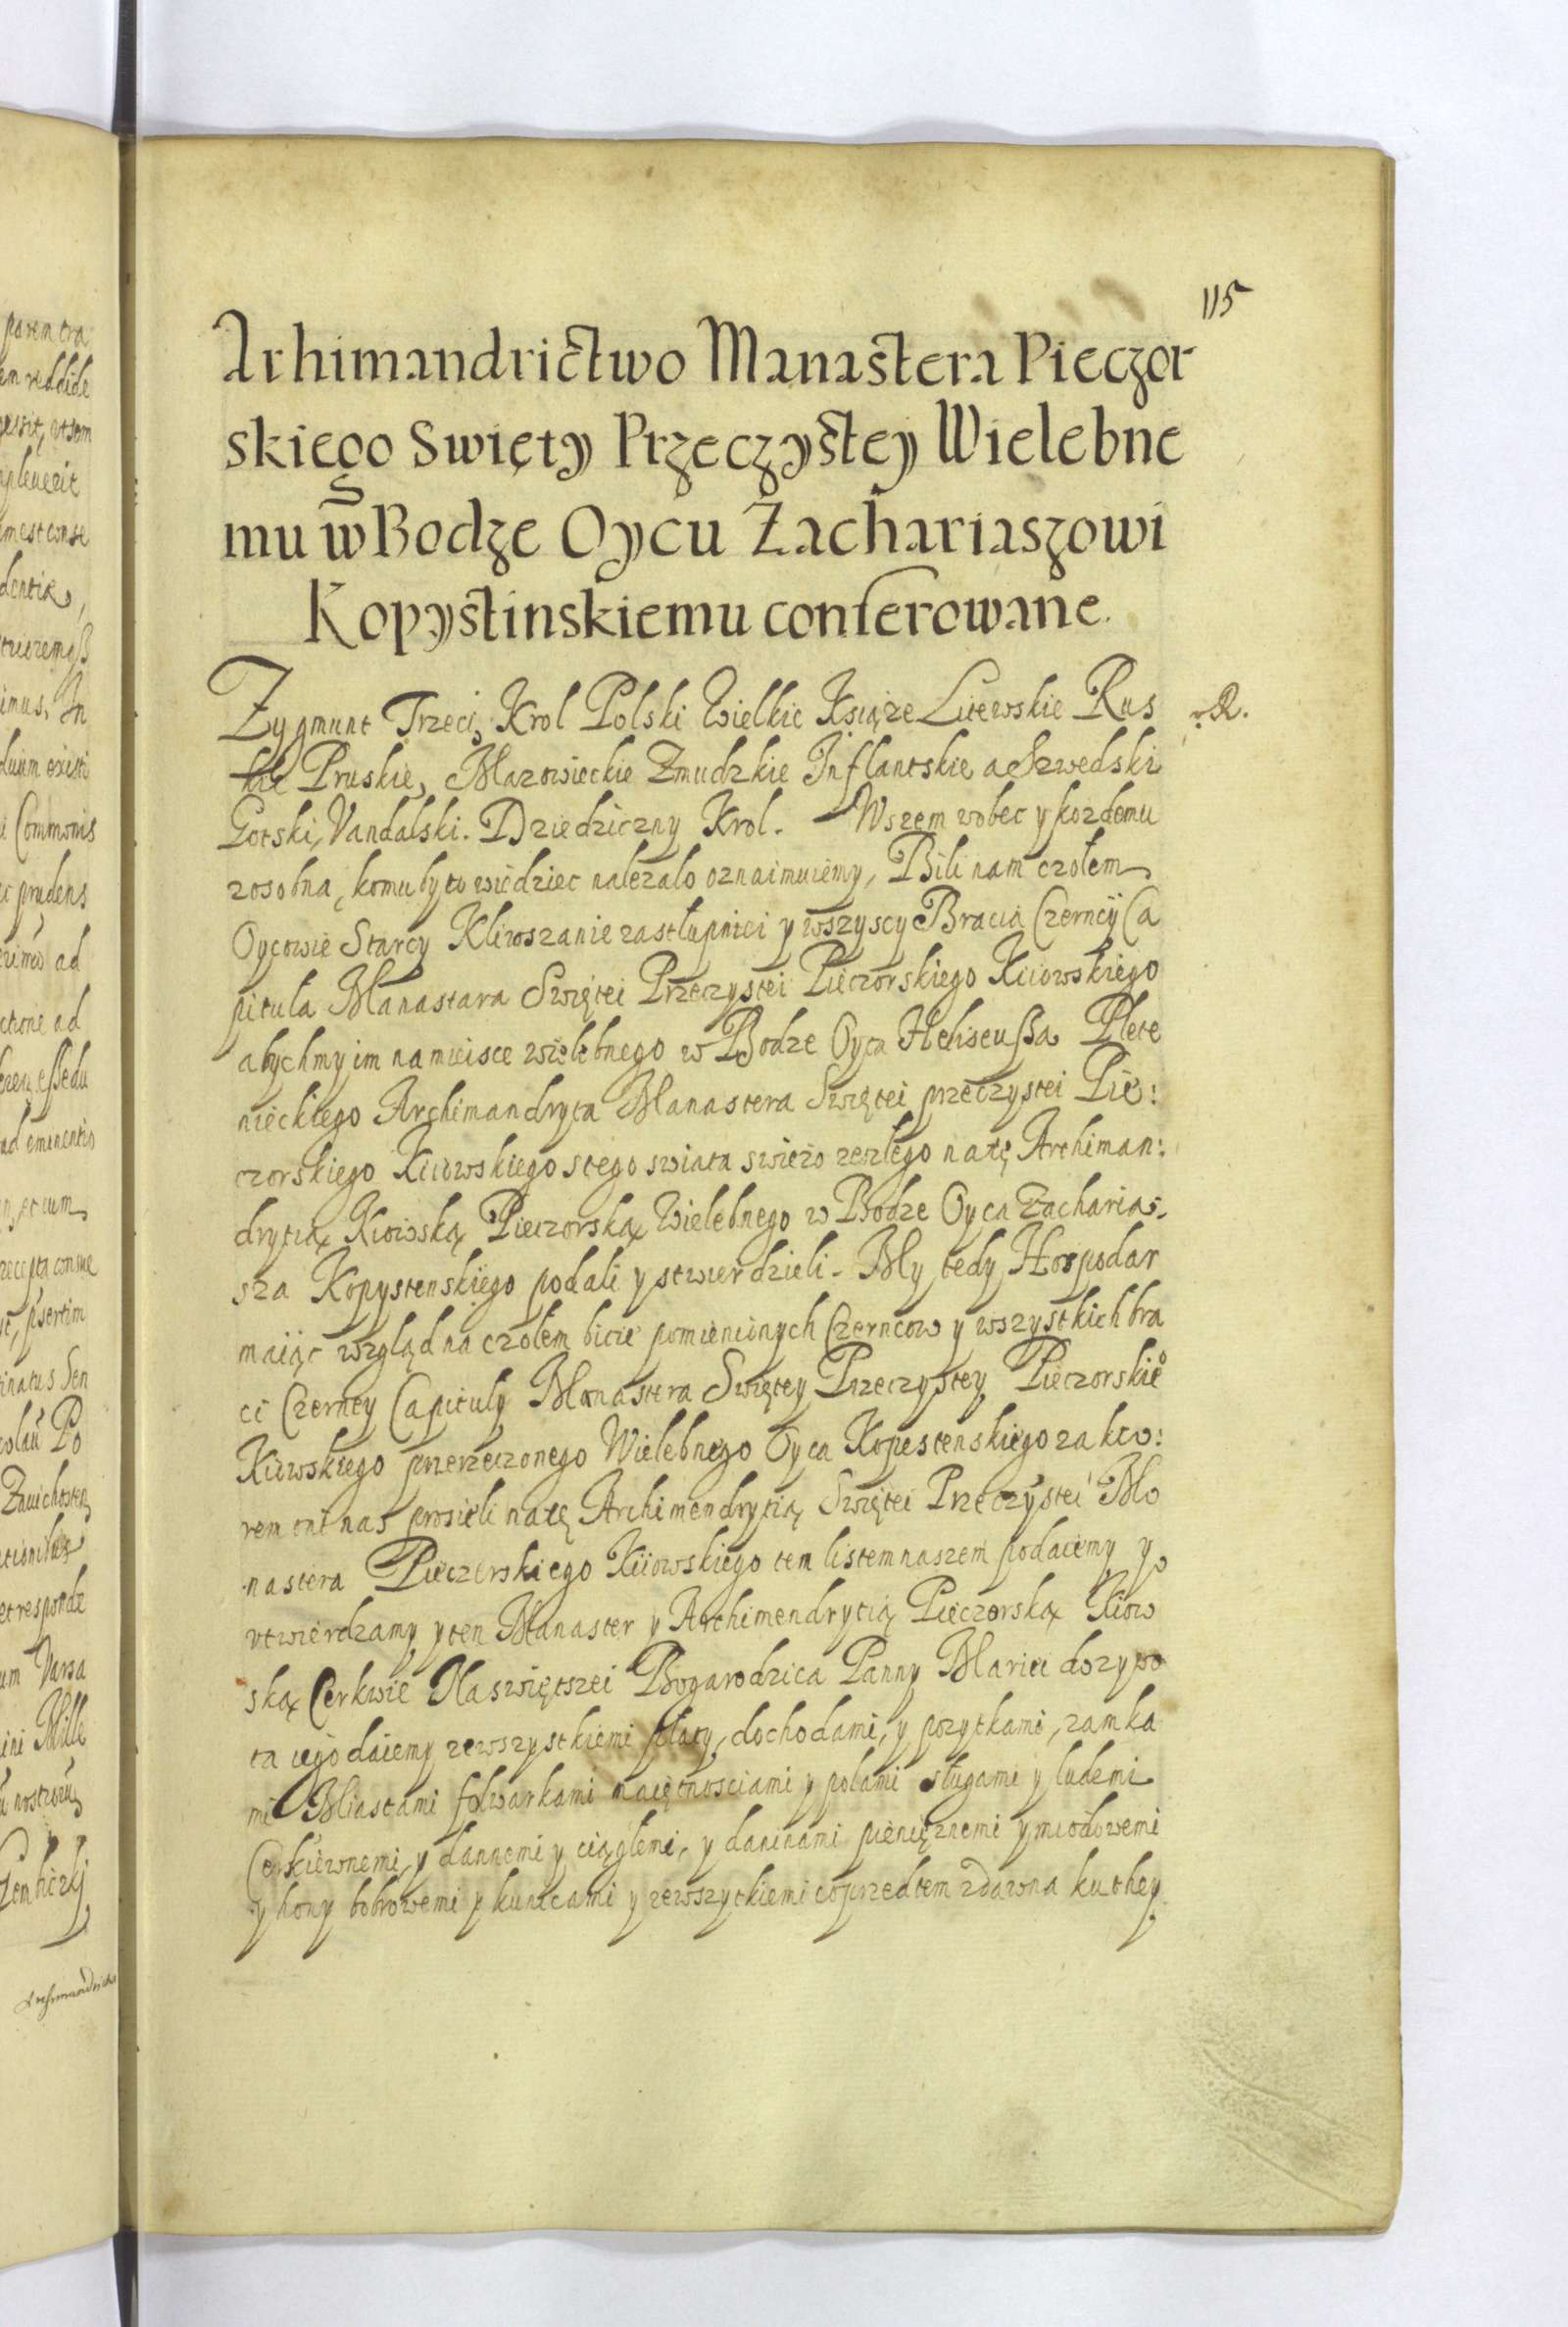 115
Arhimandrictwo Manastera Pieczor
skiego Swięty Przeczystey Wielebne
mu w Bodze Oycu Zachariaszowi
Kopystinskiemu conferowane.
Zygmunt Trzeci, Krol Polski Wielkie Książe Litewskie Rus
R.
kie Pruskie, Mazowieckie Zmudzkie Inflantskie a Szwedski
Gotski, Vandalski. Dziedziczny Krol. Wszem wobec y kozdemu
zosobna, komu by to wiedziec nalezalo oznaimuiemy, Bili nam czołem
Oycowie Starcy Kliroszanie zastupnici y wszyscy Bracia Czerncy Ca
pitula Manastara Swiętei Przeczystei Pieczorskiego Kiiowskiego
abychmy im na mieisce wielebnego w Bodze Oyca Heliseussa Plete
nieckiego Archimandryta Manastera Swiętei przeczystei Pie:
czorskiego Kiiowskiego stego swiata swieżo zeszłego na tę Archiman:
drytią Kiowską Pieczorską Wielebnego w Bodze Oyca Zacharias-
sza Kopystenskiego podali y stwierdzieli. My tedy Hospodar
maiąc wzgląd na czołem bicie pomienionych Czerncow y wszystkich bra
ci Czerncy Capituly Monastera Swiętey Przeczystey Pieczorskieo
Kiiowskiego przerzeczonego Wielebnego Oyca Kopestenskiego za kto:
rem oni nas prosieli na tę Archimendrytią Swiętei Przeczystei Mo
nastera Pieczerskiego Kiiowskiego tem listem naszem podaiemy y
vtwierdzamy y ten Manaster y Archimendrytią Pieczorską Kiow
ską Cerkwie Naswiętszei Bogarodzica Panny Mariei do zywo
ta iego daiemy zewszystkiemi płaty, dochodami, y pozytkami, zamka
mi Miastami folwarkami maiętnosciami y polami sługami y ludemi
Cerkiewnemi, y dannemi y ciągłemi, y daninami pieniężnemi y miodowemi
y hony bobrowemi y kunicami y zewszytkiemi co przedtem zdawna ku they